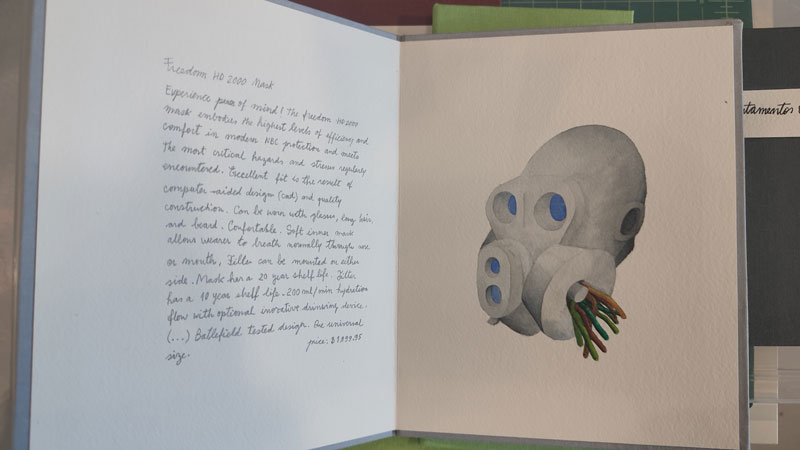 Freedom HD 2000 Mask
Experience peace of mind! The freedom HD 2000
mask embodies the highest levels of efficiency and
comfort in modern NBC protection and meets
The most critical hazards and stresses regularly
encountered. Excellent fit is the result of
computer-aided design (cad) and quality
construction. Can be worn with glasses, long hair
and beard. Confortable. Soft inner mask
allows wearer to breath normally through nose
or mouth, Filter can be mounted on either
side. Mask has a 20 year shelf life. Filter
has a 10 year shelf life - 200 ml/min hydration
flow with optional inovative drinking device.
(...) Battlefield tested design. One universal
size.
price: